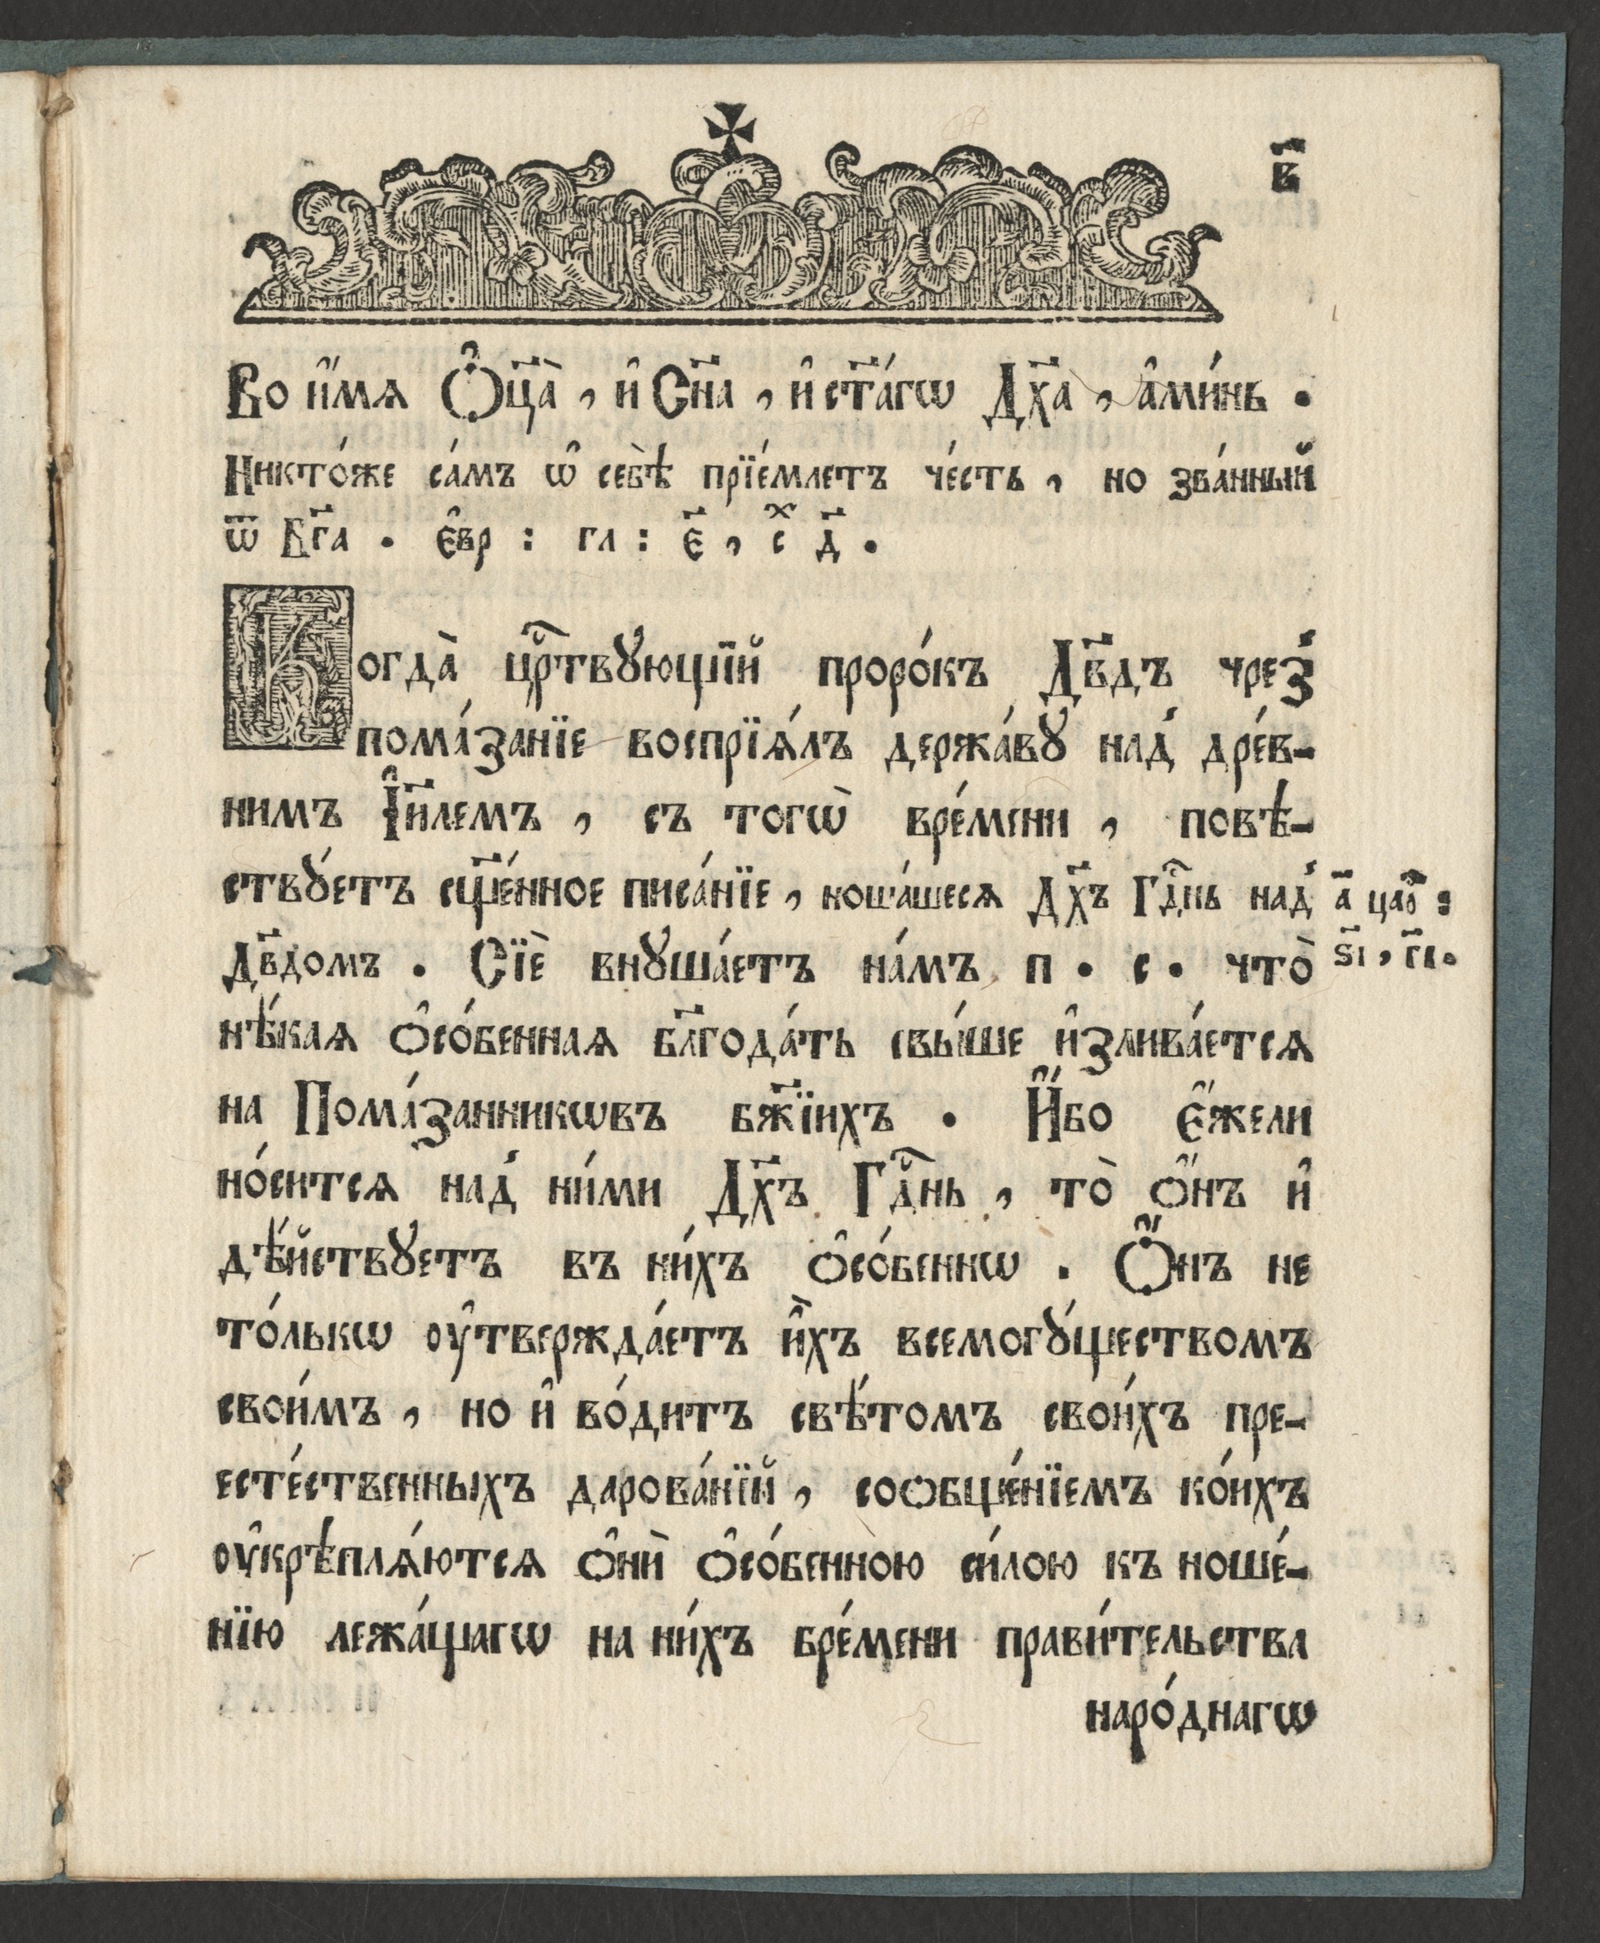 в҃
Во и҆́мѧ Ѻ҆ц҃а̀, и҆ Сн҃а, и҆ ст҃а́гѡ Дх҃а, а҆ми́нь.
Никто́же са́мъ ѡ҆ себѣ̀ прїе́млетъ че́сть, но зва́нный
ѿ Бг҃а. є҆вр: гл: є҃, с̾ д҃.
Когда̀ цр҇твꙋющїй проро́къ Дв҃дъ чрез̾
пома́занїе воспрїѧ́лъ держа́вꙋ над̾ дре́в-
нимъ І҆и҃лемъ, съ тогѡ̀ вре́мени, повѣ-
ствꙋ́етъ сщ҃е́нное писа́нїе, ноша́шесѧ Дх҃ъ Гд҇нь над̾
а҃ цар҇:
ѕ҃і, г҃і.
Дв҃домъ. Сїѐ внꙋша́етъ на́мъ п. с. что̀
нѣ́каѧ ѻ҆со́беннаѧ бл҃года́ть свы́ше и҆злива́етсѧ
на Пома́занникѡвъ бж҃їихъ. И҆́бо є҆́жели
но́ситсѧ над̾ ни́ми Дх҃ъ Гд҇нь, то̀ ѻ҆́нъ и҆
дѣ́йствꙋетъ въ ни́хъ ѻ҆со́беннѡ. Ѻ҆́нъ не
то́лькѡ оу҆твержда́етъ и҆̀хъ всемогꙋ́ществомъ
свои́мъ, но и҆ во́дитъ свѣ́томъ свои́хъ пре-
есте́ственныхъ дарова́нїй, соѻбще́нїемъ ко́ихъ
оу҆крѣплѧ́ютсѧ ѻ҆нѝ ѻ҆со́бенною си́лою къ ноше́-
нїю лежа́щагѡ на ни́хъ бре́мени прави́тельства
наро́днагѡ